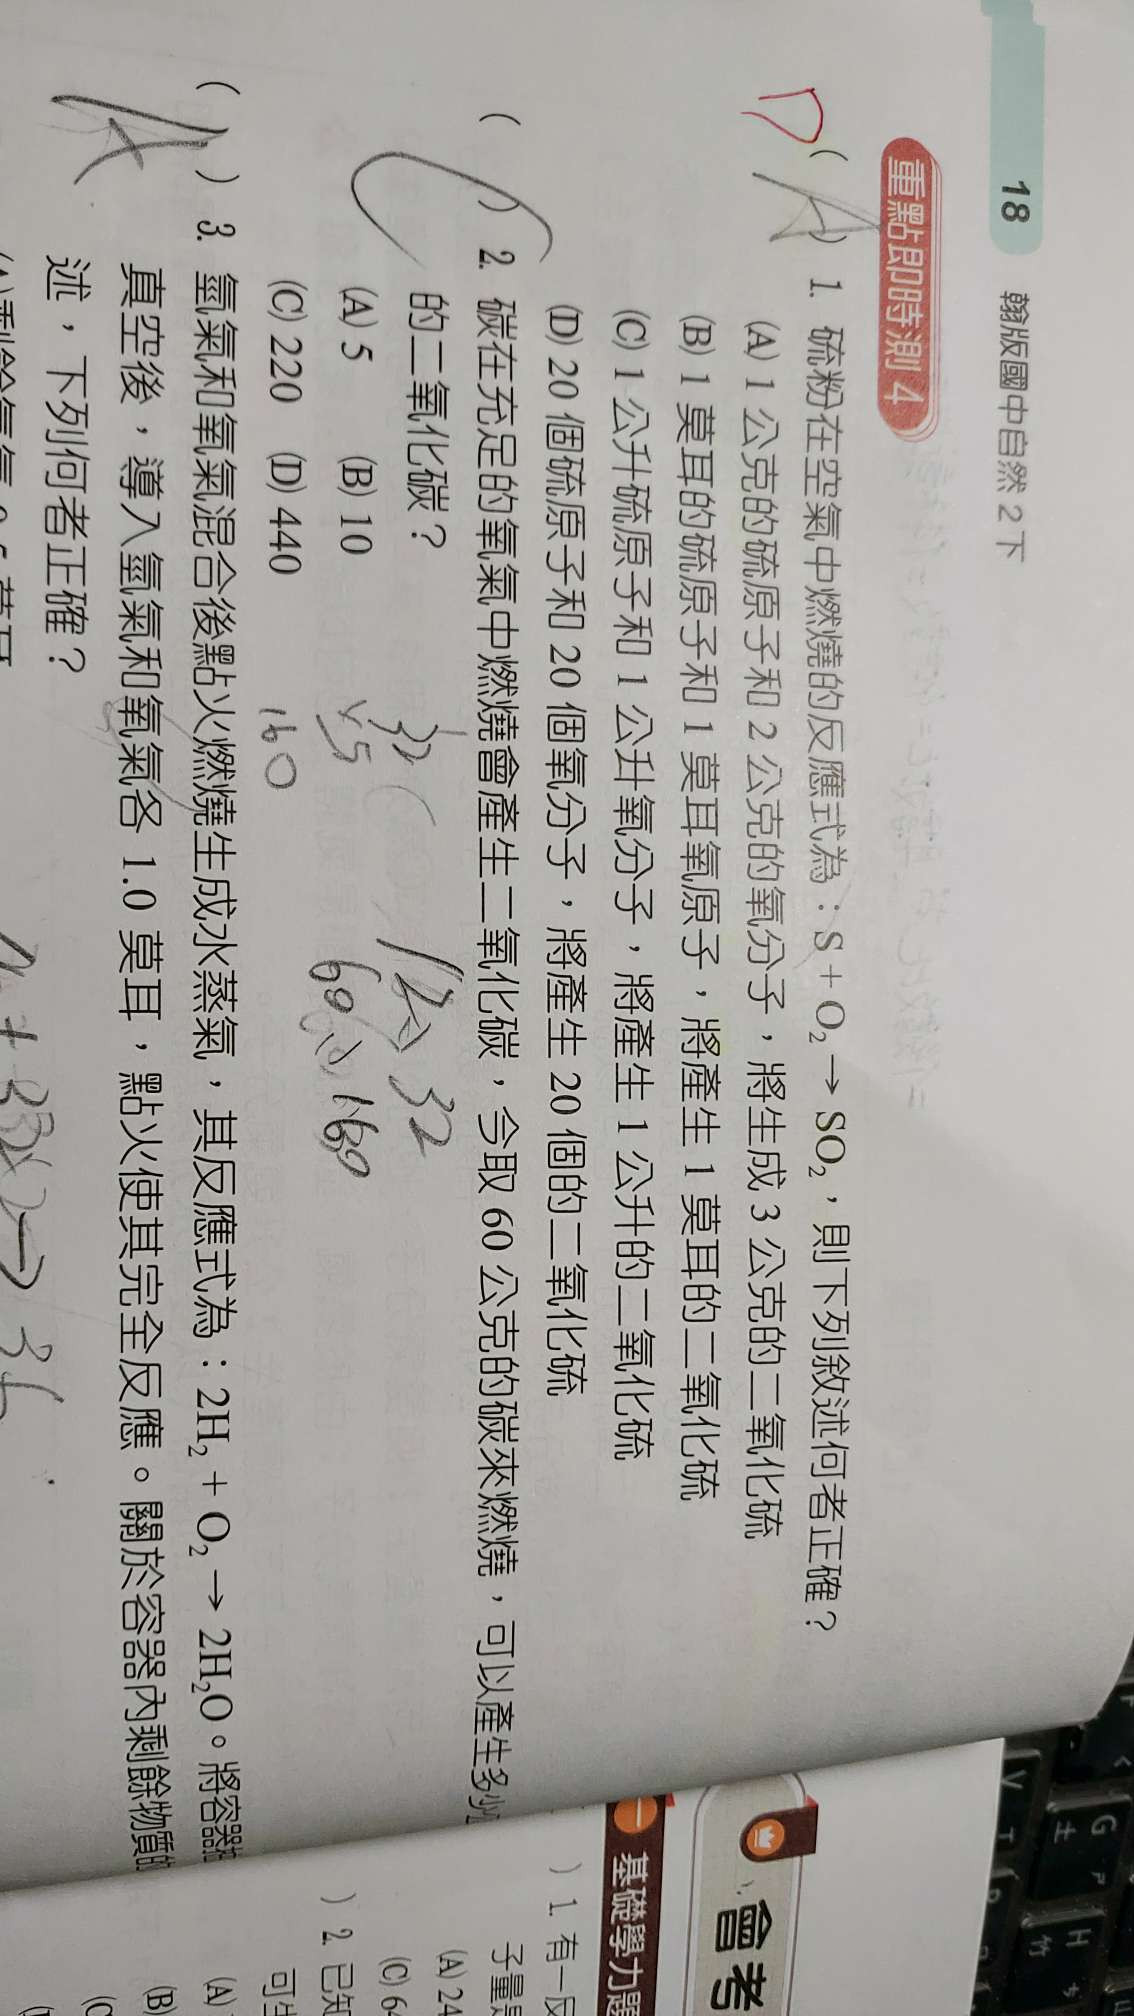 18 翰版國中自然 2 下
重點即時測 4
D
( A ) 1. 硫粉在空氣中燃燒的反應式為：S + O₂ → SO₂，則下列敘述何者正確？
(A) 1 公克的硫原子和 2 公克的氧分子，將生成 3 公克的二氧化硫
(B) 1 莫耳的硫原子和 1 莫耳氧原子，將產生 1 莫耳的二氧化硫
(C) 1 公升硫原子和 1 公升氧分子，將產生 1 公升的二氧化硫
(D) 20 個硫原子和 20 個氧分子，將產生 20 個的二氧化硫
( C ) 2. 碳在充足的氧氣中燃燒會產生二氧化碳，今取 60 公克的碳來燃燒，可以產生多少
的二氧化碳？
(A) 5 (B) 10
(C) 220 (D) 440
32
x5
160
12 32
60 160
( A ) 3. 氫氣和氧氣混合後點火燃燒生成水蒸氣，其反應式為：2H₂ + O₂ → 2H₂O。將容器
真空後，導入氫氣和氧氣各 1.0 莫耳，點火使其完全反應。關於容器內剩餘物質的
述，下列何者正確？
會考
一 基礎學力題
) 1. 有一反
子量
(A) 24
(C) 64
) 2. 已知
可生
(A)
(B)
G
H
竹
土
V